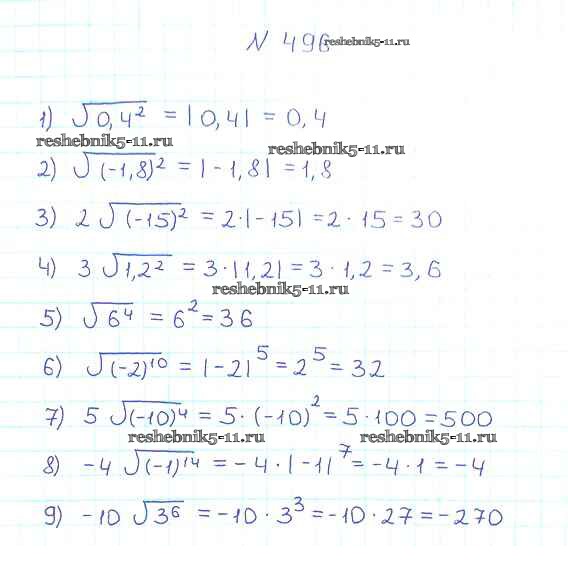 № 496 reshebnik5-11.ru
1) √0,4² = |0,4| = 0,4
reshebnik5-11.ru reshebnik5-11.ru
2) √(-1,8)² = |-1,8| = 1,8
3) 2 √(-15)² = 2·|-15| = 2·15 = 30
4) 3 √1,2² = 3·|1,2| = 3·1,2 = 3,6
reshebnik5-11.ru
5) √6⁴ = 6² = 36
6) √(-2)¹⁰ = |-2|⁵ = 2⁵ = 32
7) 5 √(-10)⁴ = 5·(-10)² = 5·100 = 500
reshebnik5-11.ru reshebnik5-11.ru
8) -4 √(-1)¹⁴ = -4·|-1|⁷ = -4·1 = -4
9) -10 √3⁶ = -10·3³ = -10·27 = -270